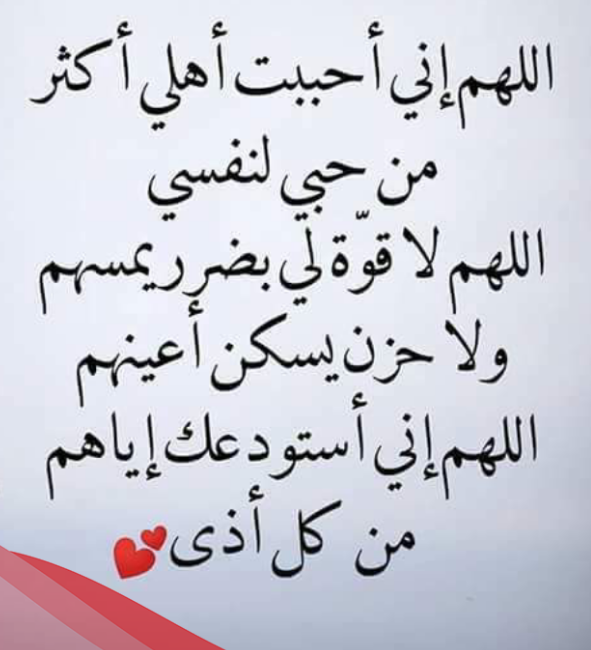 اللهم إني أحببت أهلي أكثر
من حبي لنفسي
اللهم لا قوّة لي بضر يمسهم
ولا حزن يسكن أعينهم
اللهم إني أستودعك إياهم
من كل أذى💕